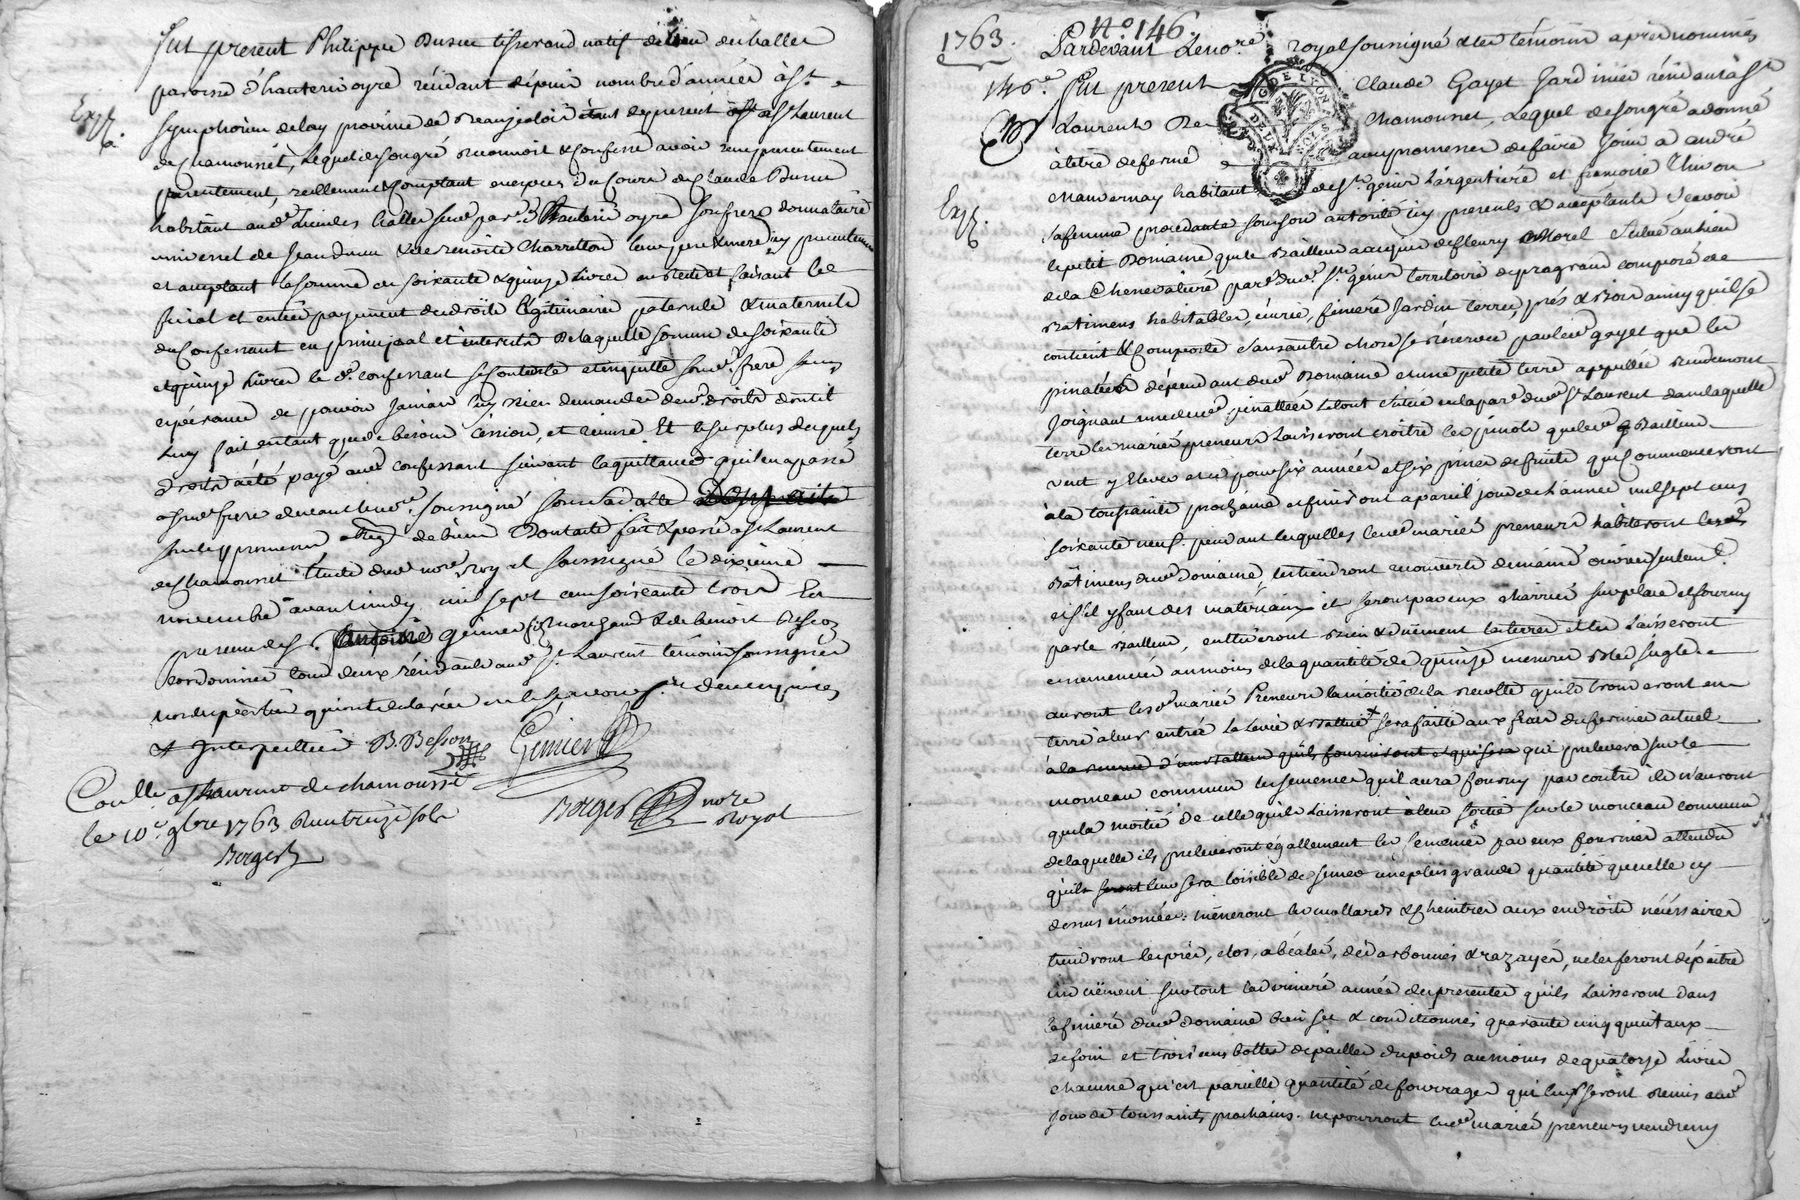 fut present Philippe tisserand natif du lieu des halles
paroisse d'hauterivoyre résidant depuis nombre d'année à St
Exp.
symphorien delay province de Beaujolois étant de present à St Laurent
de Chamousset, Lequel de son gré reconnoit & confesse avoir reçu presentement
presentement, reellement & comptant en especes du cours de Claude
habitant aud. lieu des halles susd. par. d'hauterivoyre son frere donnataire
universel de Jean & de Benoite Charretton leur pere & mere icy present
et acceptant la somme de soixante & quinze Livres en reste et faisant le
final et entier payement des droits légitimaires paternels & maternels
du Confessant en principal et interests De laquelle somme de soixante
et quinze Livres le d. confessant se contente et en quitte sond. frere sans
espérance de pouvoir jamais luy rien demander desd. droits dont il
luy fait en tant que de besoin cession, et remise Et le surplus desquels
droits a été payé aud. confessant suivant la quittance qu'il en a passé
a sond. frere devant le no.re soussigné sous sa datte
promesse oblig. de biens Dont acte fait & passé à St Laurent
de Chamousset Etude dud. no.re royal soussigné le dixieme
novembre avant midy mil sept cent soixante trois En
presence de s. Antoine génier fils marchand & de benoit besson
cordonnier tous deux résidants aud. St Laurent témoins soussignés
non led. qui ont déclaré ne le sçavoir de ce enquis
& Interpellés B. Besson Génier
Conllé a St Laurent de chamousset
le 10.e 9bre 1763 Reçu treize sols
Berger no.re Royal
Berger
1763. N.o 146.
Pardevant Le no.re royal soussigné & les témoins après nommés
146.e fut present Claude Gayet Jardinier résidant à St
Laurent De Chamousset, Lequel de son gré a donné
à titre de ferme avec promesse de faire jouir a andré
Exp.
Mauvernay habitant de St. génis l'argentiere et francoise Thivon
sa femme procedante sous son autorité icy presents & acceptants scavoir
le petit Domaine que le Bailleur a acquis de fleury Morel Situé au lieu
de la Chenevatiere par. dud. St. génis territoire de pragrand composé de
Batimens habitables, écurie, feniere Jardin terres, prés & Bois ainsy qu'il se
contient & Comporte sans autre chose se réserver par led. gayet que les
pinatées dépendant dud. Domaine et une petite terre appellée
Joignant une desd. pinattées Le tout situé en la par. dud. St Laurent dans laquelle
terre les mariés preneurs Laisseront croître les pinots que led. Bailleur
veut y Elever et ce pour six années et six prises de fruits qui commenceront
à la toussaints prochaine et finiront a pareil jour de l'année mil sept cens
soixante neuf. pendant lesquelles lesd. mariés preneurs habiteront lesd.
Bâtimens dud. Domaine, les tiendront recouverts de main d'ouvrier seulem.t
et s'il y faut des matériaux ils seront par eux charriés sur place et fournis
par le Bailleur, cultiveront bien & duëment les terres et les Laisseront
ensemencées au moins de la quantité de quinze mesures Bled seigle
auront lesd. mariés Preneurs la moitié de la recolte qu'ils trouveront en
terre à leur entrée La Levée & battue sera faitte aux frais du fermier actuel
à la qu'ils fourniront et qui sera qui prelevera sur le
monceau commun les semences qu'il aura fourny par contre ils n'auront
que la moitié de celle qu'ils Laisseront à leur sortie sur le monceau commun
de laquelle ils preleveront également les semences par eux fournies attendu
qu'ils leur sera loisible de semer une plus grande quantité que celle cy
dessus énoncée: meneront les mollards & cheintres aux endroits nécéssaires
tiendront les prés, clos, abéalés, détarbonnés & razayés, ne les feront dépaitre
surtout la derniere année des presentes qu'ils Laisseront dans
la feniere dud. domaine bien sec & conditionnés quarante cinq quintaux
de foin et trois cens bottes de paille du poids au moins de quatorze Livres
chacune qu'est pareille quantité de fourrage qui leurs seront remis aud.
jour de toussaints prochains. ne pourront lesd. mariés preneurs vendre ny